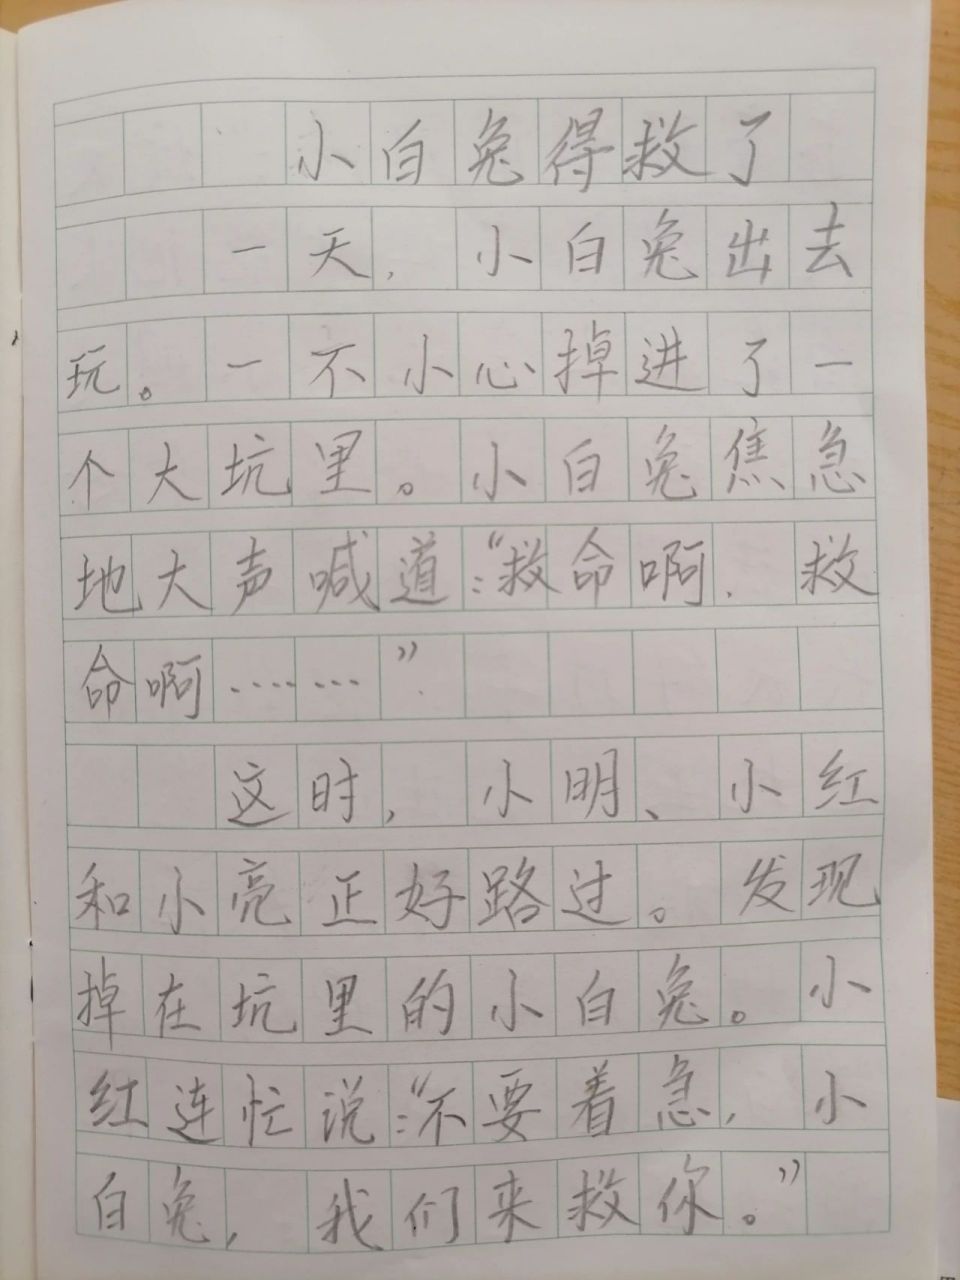 小白兔得救了
一天,小白兔出去
玩。一不小心掉进了一
个大坑里。小白兔焦急
地大声喊道:“救命啊,救
命啊……”
这时,小明、小红
和小亮正好路过。发现
掉在坑里的小白兔。小
红连忙说:“不要着急,小
白兔,我们来救你。”